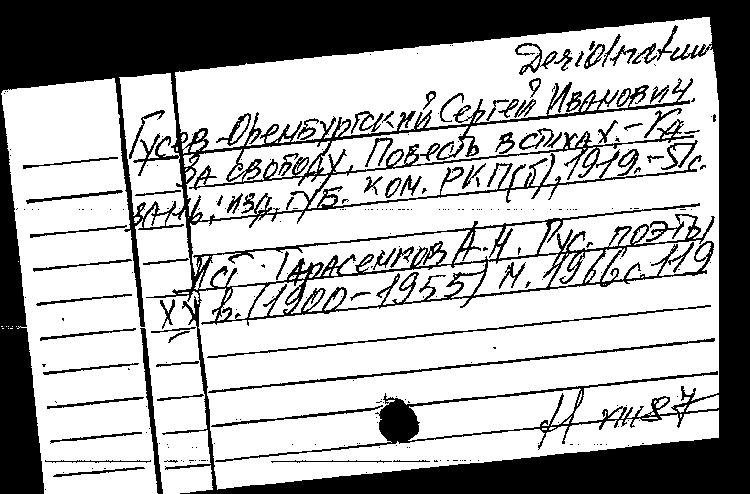 Desideratum
Гусев-Оренбургский Сергей Иванович
За свободу. Повесть в стихах. - Ка-
зань: изд. губ. ком. РКП(б), 1919. - 51с.
Ист. Тарасенков А.Н. Рус. поэты
XX в. (1900-1955) М. 1966 с. 119
VIII 87